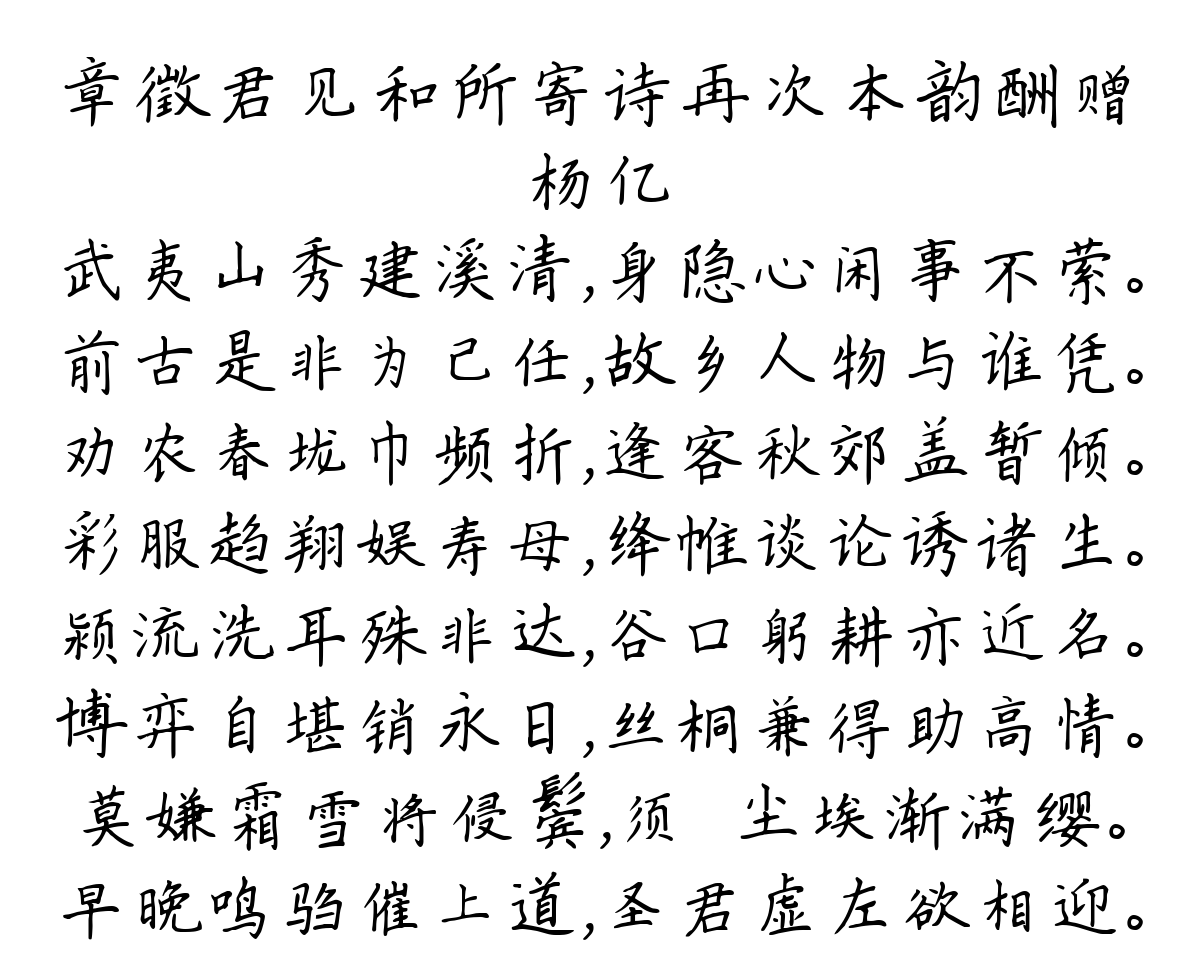 章徵君见和所寄诗再次本韵酬赠
杨亿
武夷山秀建溪清,身隐心闲事不萦。
前古是非为己任,故乡人物与谁凭。
劝农春垅巾频折,逢客秋郊盖暂倾。
彩服趋翔娱寿母,绛帷谈论诱诸生。
颍流洗耳殊非达,谷口躬耕亦近名。
博弈自堪销永日,丝桐兼得助高情。
莫嫌霜雪将侵鬓,须 尘埃渐满缨。
早晚鸣驺催上道,圣君虚左欲相迎。